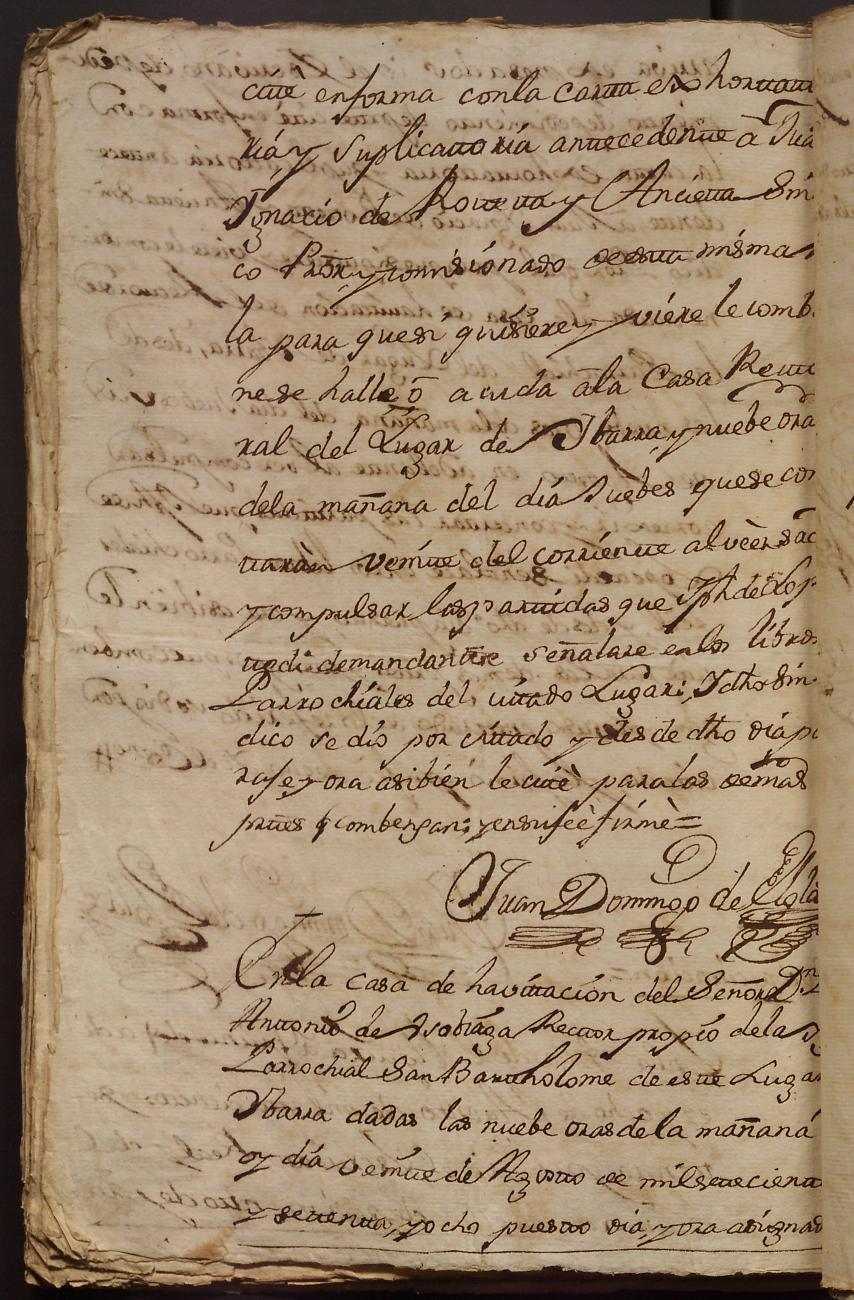 cite en forma con la carta exhortato
ria, y suplicatoria antecedente à Jua
Ignacio de Roteta y Ancieta Sin
co Prõr y comisionado de esta misma
la para que si quisiere, y viere le comb
ne se halle, ō acuda à la Casa Retto
ral del Lugar de Ibarra, y nuebe ora
dela mañana del día Juebes que se con
taràn veinte del corriente al veèr sac
y compulsar las partidas que Jph de Lop
tedi demandante señalare en los libros
Parrochiales del citado Lugar; Y dho Sin
dico se dio por citado y desde dho dia pa
rase, y ora asibien le citè para las demas
prtes q combengan; y en su feè firmè=
Juan Domingo de
En la casa de havitación del Señor Dn
Antonio de Ysobiaga Rector propio de la Y
Parrochial San Bartholome de este Lugar
Ybarra dadas las nuebe oras de la mañana
oy dia veinte de Agosto de mil setecient
y setenta, y ocho puesto dia, y ora asignad